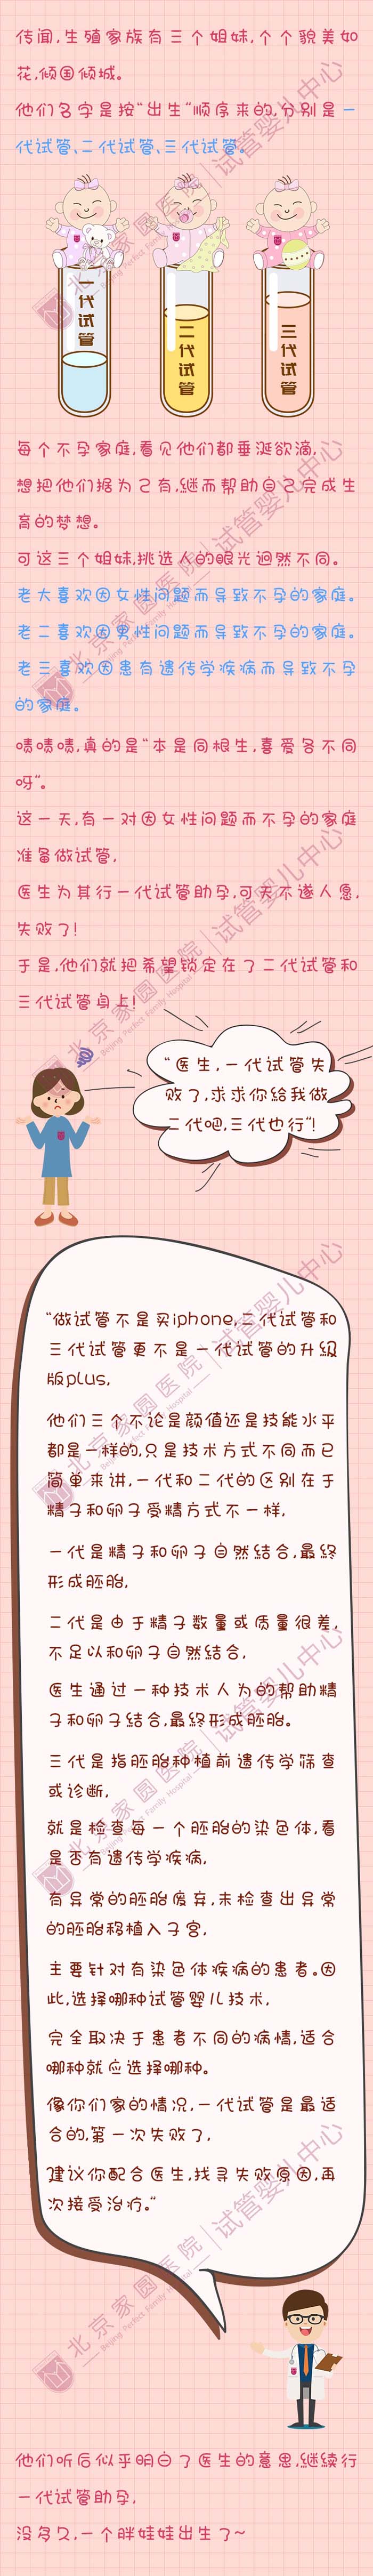 传闻,生殖家族有三个姐妹,个个貌美如
花,倾国倾城。
他们名字是按“出生“顺序来的,分别是一
代试管、二代试管、三代试管。
一代试管
二代试管
三代试管
每个不孕家庭,看见他们都垂涎欲滴,
想把他们据为己有,继而帮助自己完成生
育的梦想。
可这三个姐妹,挑选人的眼光迥然不同。
老大喜欢因女性问题而导致不孕的家庭。
老二喜欢因男性问题而导致不孕的家庭。
老三喜欢因患有遗传学疾病而导致不孕
的家庭。
啧啧啧,真的是“本是同根生,喜爱各不同
呀“。
这一天,有一对因女性问题而不孕的家庭
准备做试管,
医生为其行一代试管助孕,可天不遂人愿,
失败了!
于是,他们就把希望锁定在了二代试管和
三代试管身上!
“医生,一代试管失
败了,求求你给我做
二代吧,三代也行“!
“做试管不是买iphone,二代试管和
三代试管更不是一代试管的升级
版plus,
他们三个不论是颜值还是技能水平
都是一样的,只是技术方式不同而已
简单来讲,一代和二代的区别在于
精子和卵子受精方式不一样,
一代是精子和卵子自然结合,最终
形成胚胎,
二代是由于精子数量或质量很差,
不足以和卵子自然结合,
医生通过一种技术人为的帮助精
子和卵子结合,最终形成胚胎。
三代是指胚胎种植前遗传学筛查
或诊断,
就是检查每一个胚胎的染色体,看
是否有遗传学疾病,
有异常的胚胎废弃,未检查出异常
的胚胎移植入子宫,
主要针对有染色体疾病的患者。因
此,选择哪种试管婴儿技术,
完全取决于患者不同的病情,适合
哪种就应选择哪种。
像你们家的情况,一代试管是最适
合的,第一次失败了,
建议你配合医生,找寻失败原因,再
次接受治疗。“
他们听后似乎明白了医生的意思,继续行
一代试管助孕,
没多久,一个胖娃娃出生了~
北京家圆医院|试管婴儿中心
Beijing Perfect Family Hospital